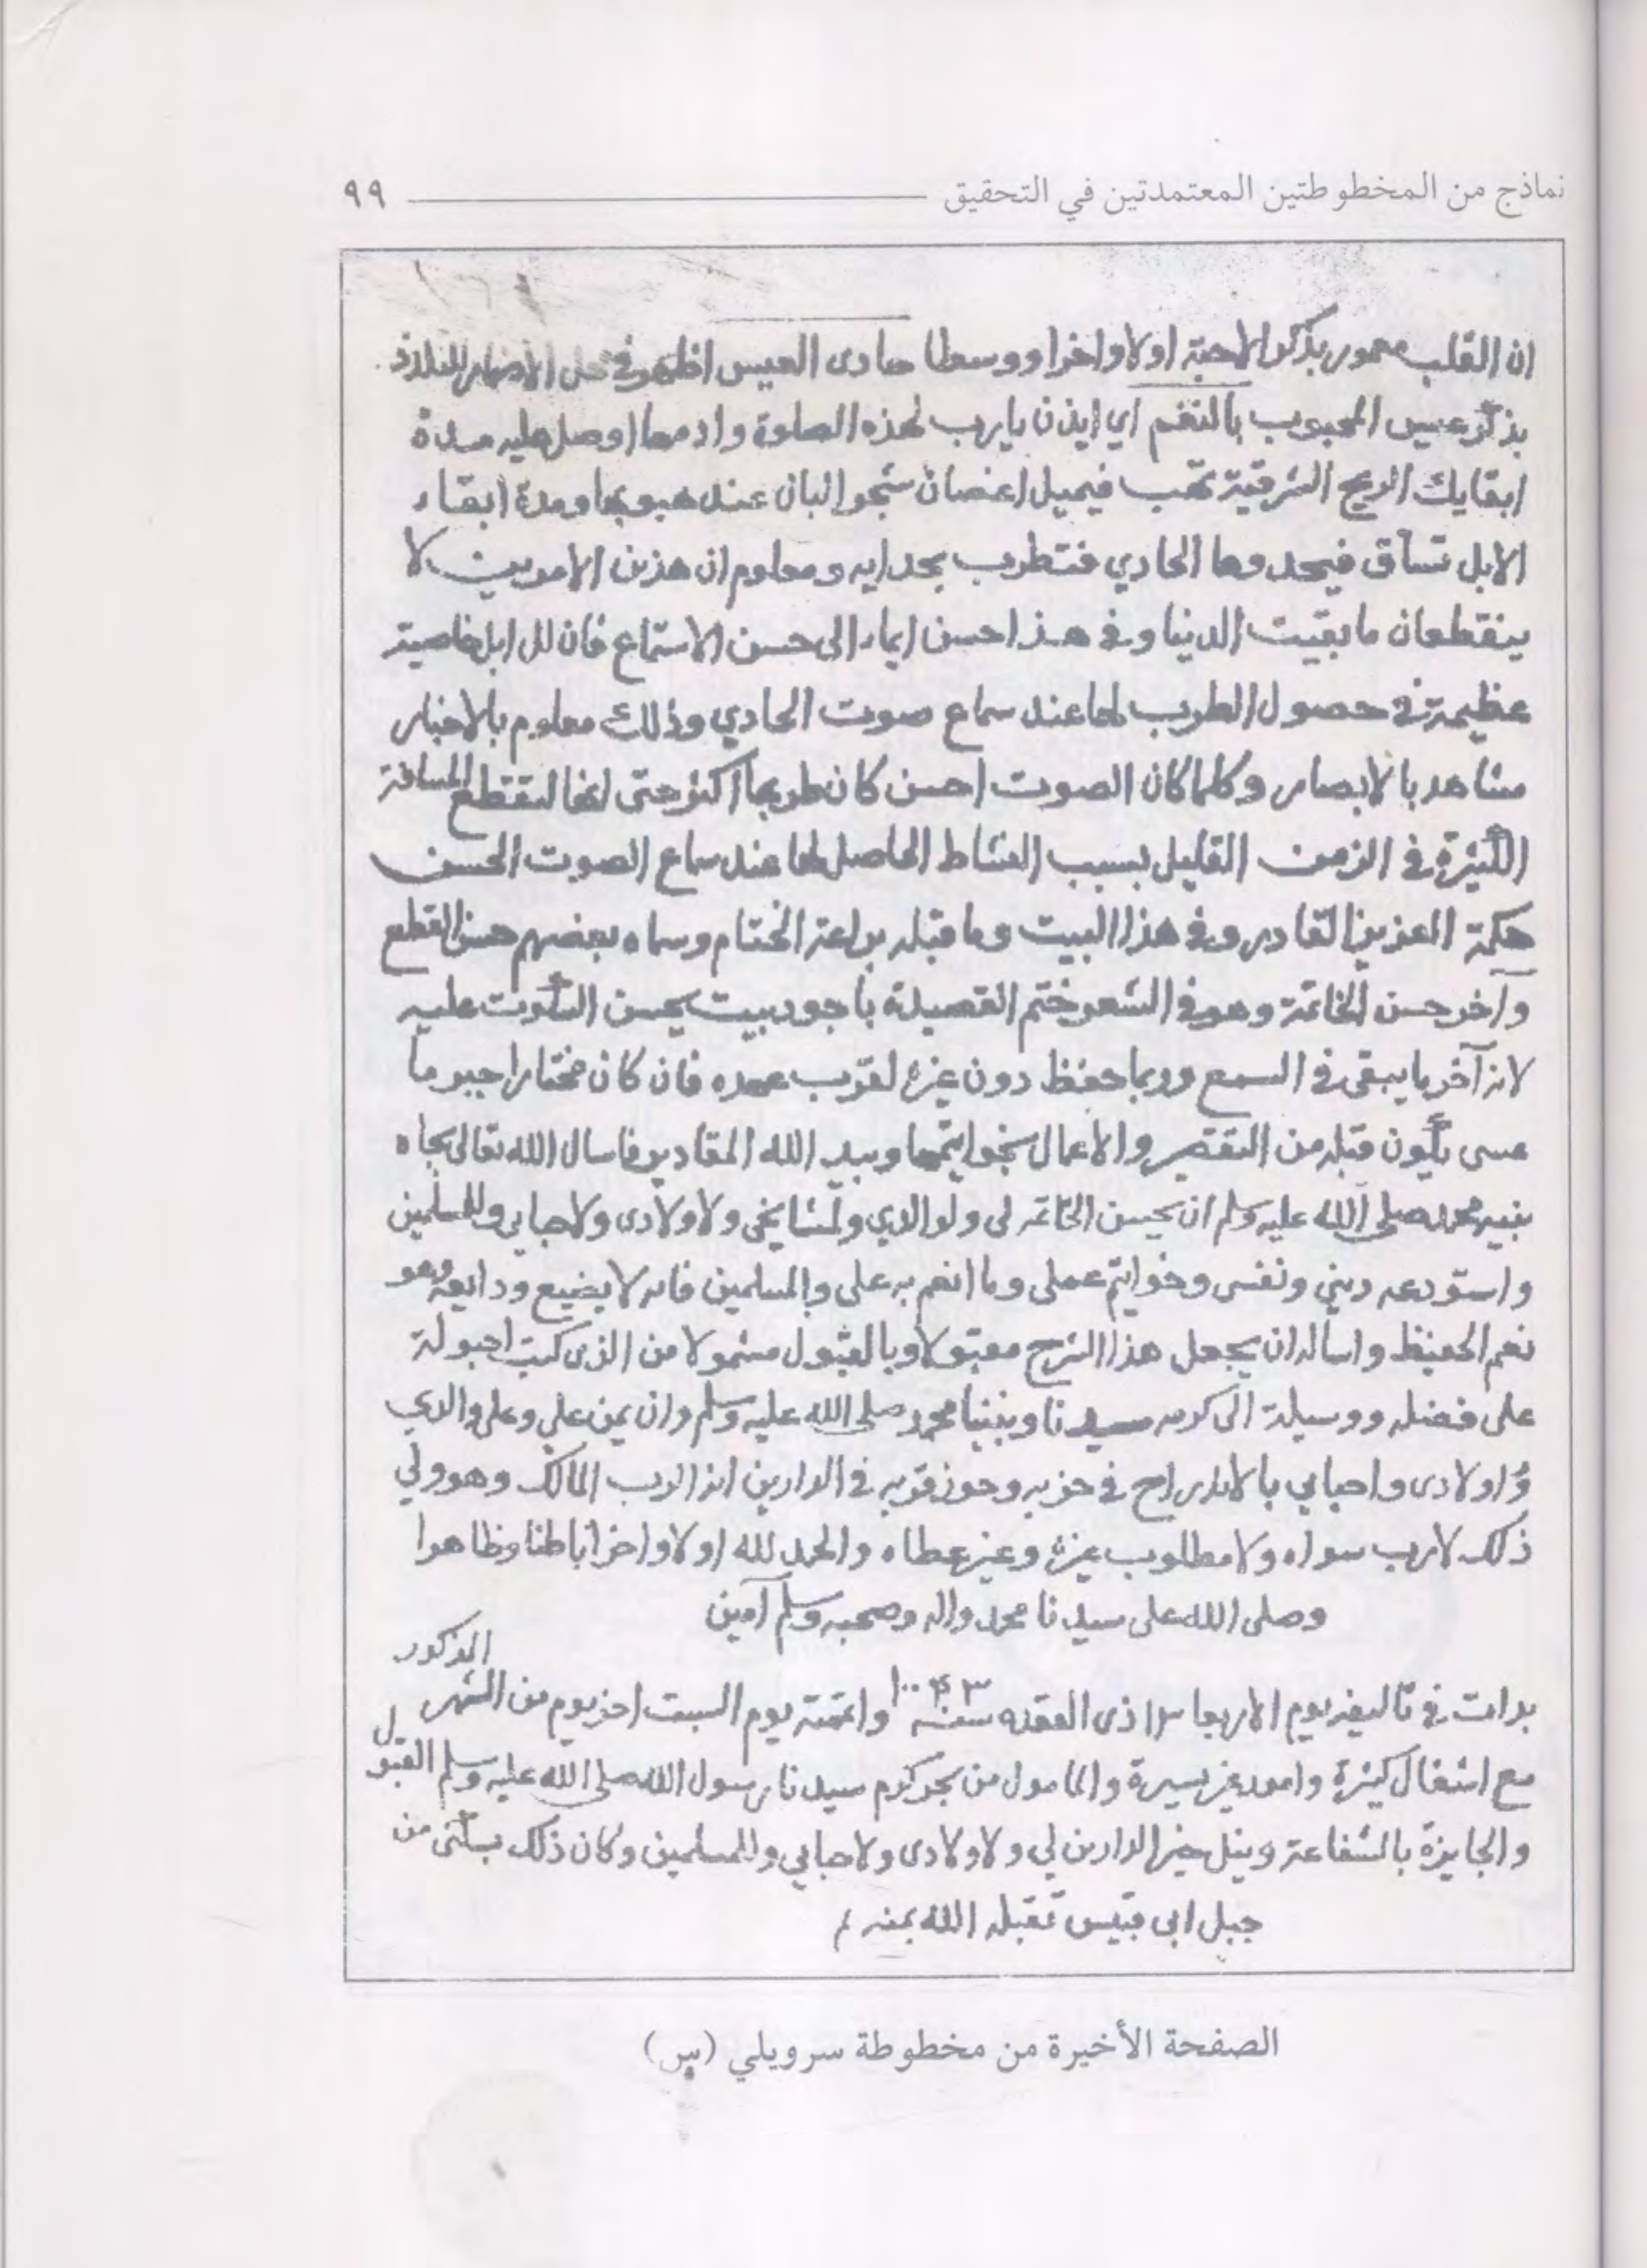 نماذج من المخطوطتين المعتمدتين في التحقيق ٩٩
ان القلب معمور بذكر الاحبة اولا واخرا ووسطا حادى العيس اظهر في محل الاضمار للتلذذ
بذكر عيس المحبوب بالنغم اي ايذن يارب لهذه الصلوة وادمها اوصل عليه مدة
ابقايك الريح الشرقية تهب فيميل اغصان شجر البان عند هبوبها ومدة ابقاء
الابل تساق فيحدوها الحادي فتطرب بحدايه ومعلوم ان هذين الامرين لا
ينقطعان ما بقيت الدنيا وفي هذا احسن ايماء الى حسن الاستماع فان للابل خاصية
عظيمة في حصول الطرب لها عند سماع صوت الحادي وذلك معلوم بالاخبار
مشاهد بالابصار وكلما كان الصوت احسن كان طربها اكثر حتى انها لتقطع المسافة
الكثيرة في الزمن القليل بسبب النشاط الحاصل لها عند سماع الصوت الحسن
حكمة العزيز القادر وفي هذا البيت وما قبله براعة الختام وسماه بعضهم حسن القطع
وآخر حسن الخاتمة وهو في الشعر ختم القصيدة باجود بيت يحسن السكوت عليه
لانه آخر ما يبقى في السمع وربما حفظ دون غيره لقرب عهده فان كان مختارا جبر ما
عسى يكون قبله من التقصير والاعمال بخواتيمها وبيد الله المقادير فاسال الله تعالى بجاه
نبيه محمد صلى الله عليه وسلم ان يحسن الخاتمه لى ولوالدي ولمشايخى ولاولادى ولاحبابي وللمسلمين
واستودعه ديني ونفسى وخواتيم عملى وما انعم به على والمسلمين فانه لا يضيع ودايعه وهو
نعم الحفيظ واساله ان يجعل هذا الشرح مقبولا وبالقبول مشمولا من الذى كتب احبولة
على فضله ووسيلة الى كرمه سيدنا ونبينا محمد صلى الله عليه وسلم وان يمن علي وعلى والدي
واولادى واحبابي بالاندراج في حزبه وحوز قربه في الدارين انه الرب المالك وهو ولي
ذلك لا رب سواه ولا مطلوب غيره وغير عطاه والحمد لله اولا واخرا باطنا وظاهرا
وصلى الله على سيدنا محمد واله وصحبه وسلم آمين
بدات في تاليفه يوم الاربعا ذى القعده سنة ١٠٤٣ واتممته يوم السبت اخر يوم من الشهر المذكور
مع اشغال كثيرة وامور غير يسيرة والمامول من بحر كرم سيدنا رسول الله صلى الله عليه وسلم القبول
والجايزة بالشفاعة ونيل خير الدارين لي ولاولادى ولاحبابي وللمسلمين وكان ذلك بسكنى من
جبل ابى قبيس تقبله الله بمنه
الصفحة الأخيرة من مخطوطة سرويلي (س)